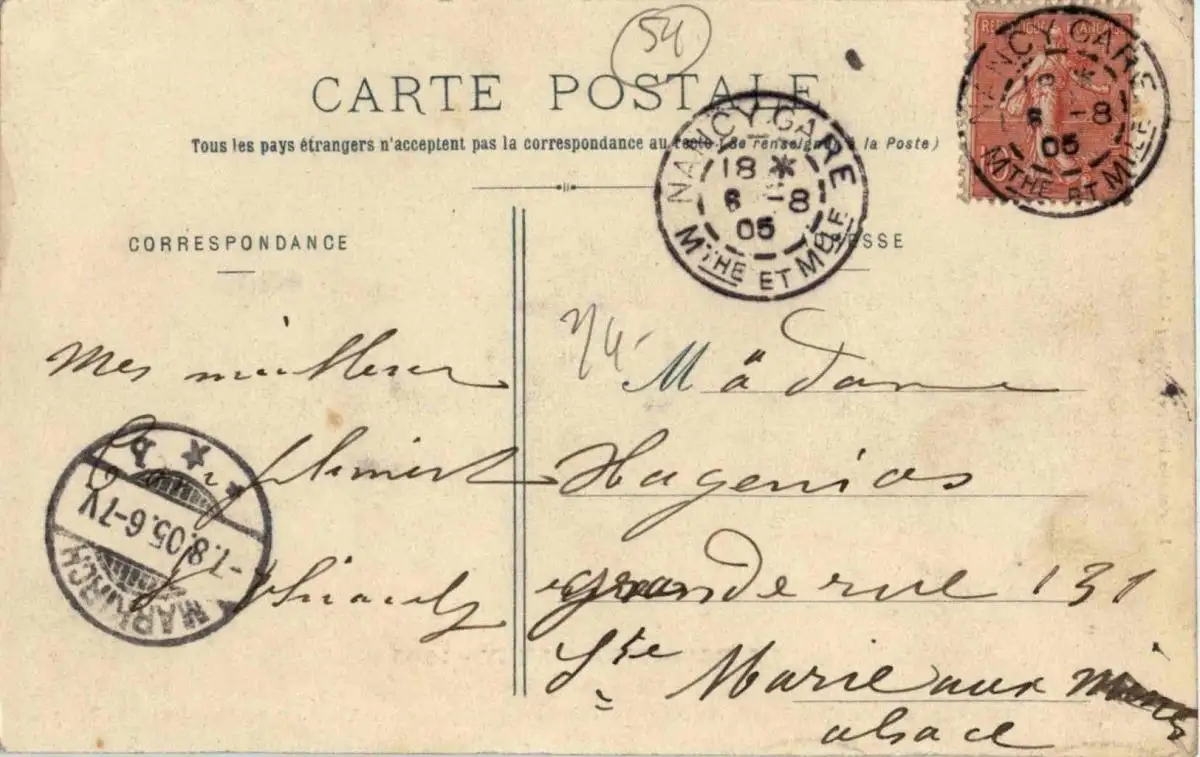 54
CARTE POSTALE
Tous les pays étrangers n'acceptent pas la correspondance au recto (Se renseigner à la Poste)
REPUBLIQUE FRANÇAISE
10
NANCY-GARE
6 -8
05
MTHE ET MLLE
NANCY-GARE
18 *
6 -8
05
MTHE ET MLLE
CORRESPONDANCE
ADRESSE
Mes meilleurs
Compliments
MARKIRCH
-7.8.05.6-7V
* b *
Madame
Hugenios
grande rue 131
Ste Marie aux mines
alsace